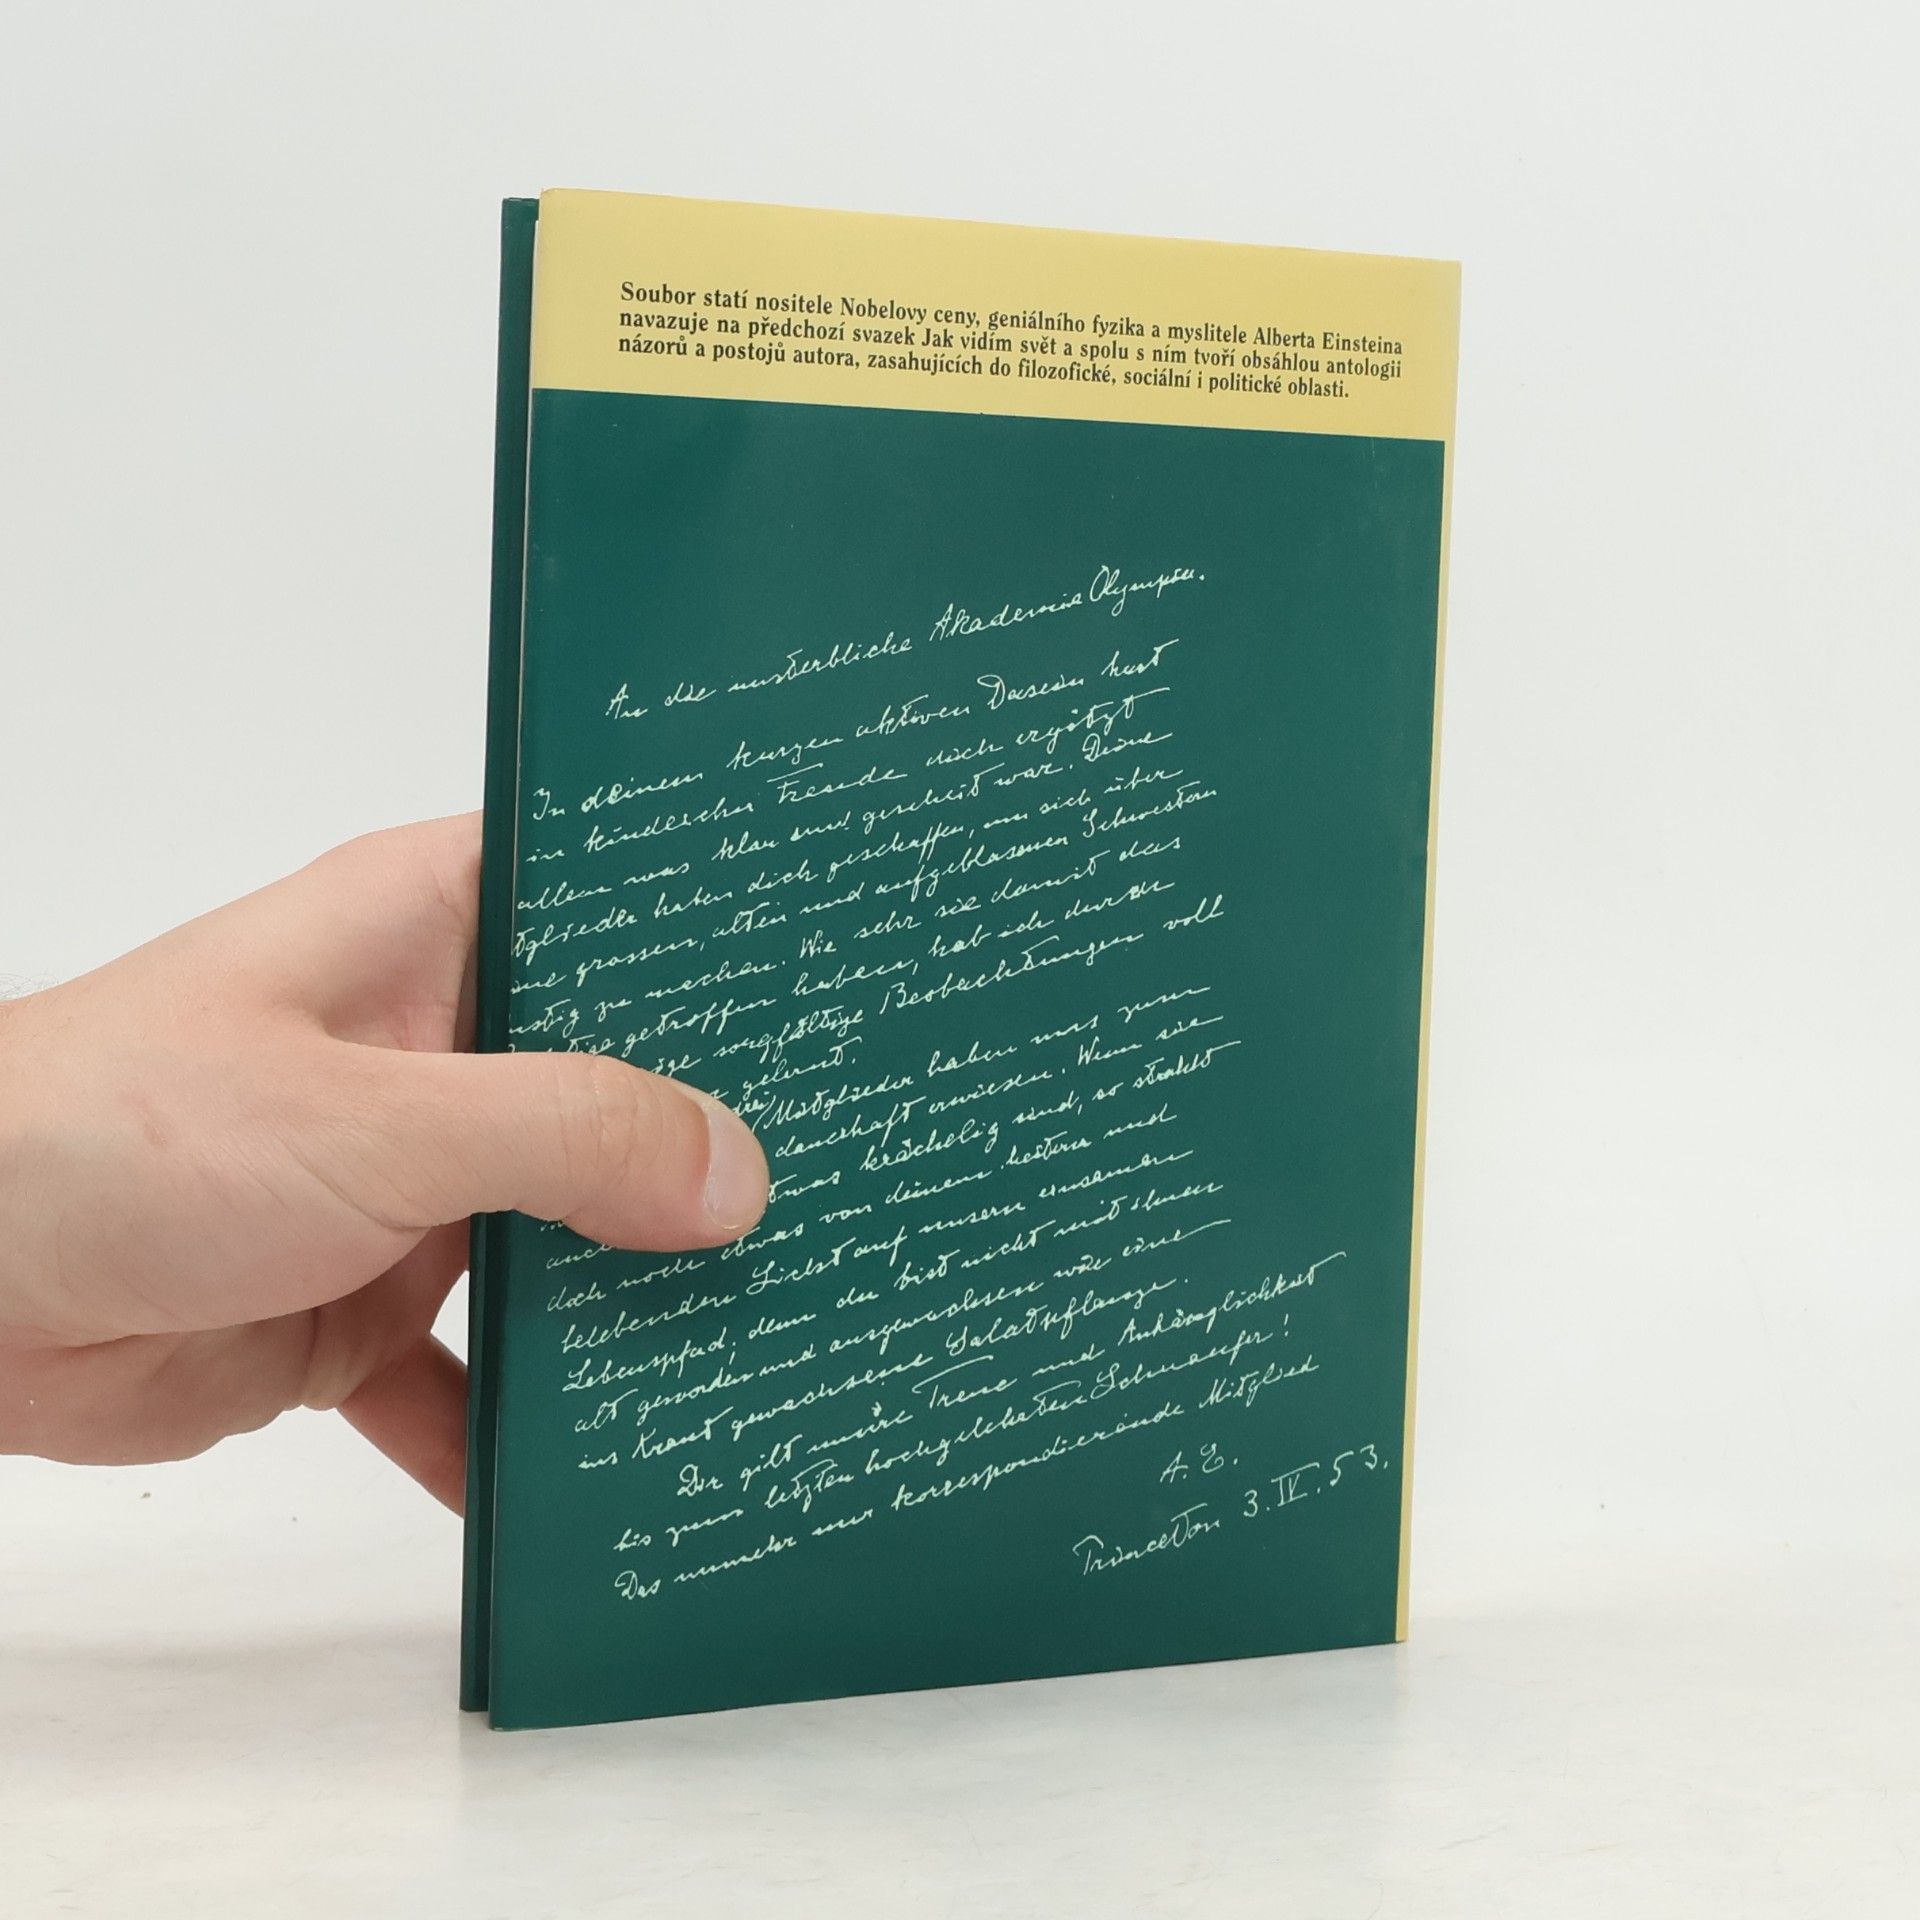 Soubor statí nositele Nobelovy ceny, geniálního fyzika a myslitele Alberta Einsteina
navazuje na předchozí svazek Jak vidím svět a spolu s ním tvoří obsáhlou antologii
názorů a postojů autora, zasahujících do filozofické, sociální i politické oblasti.
An die unsterbliche Akademie Olympia.
In deinem kurzen aktiven Dasein hast
in kindlicher Freude dich ergötzt
allem was klar und gescheit war. Deine
haben dich geschaffen, um sich über
grossen, alten und aufgeblasenen Schwestern
zu machen. Wie sehr sie damit das
getroffen haben, hab ich durch
sorgfältige Beobachtungen voll
gelernt.
drei Mitglieder haben uns zum
dauerhaft erwiesen. Wenn sie
etwas krächelig sind, so strahlt
doch noch etwas von deinem heitern und
belebenden Licht auf unsern einsamen
Lebenspfad; denn du bist nicht mit ihnen
alt geworden und ausgewachsen wie eine
ins Kraut gewachsene Salatpflanze.
Dir gilt unsere Treue und Anhänglichkeit
bis zum letzten hochgelehrten Schnaufer!
Das nunmehr nur korrespondierende Mitglied
A. E.
Princeton 3.IV.53.